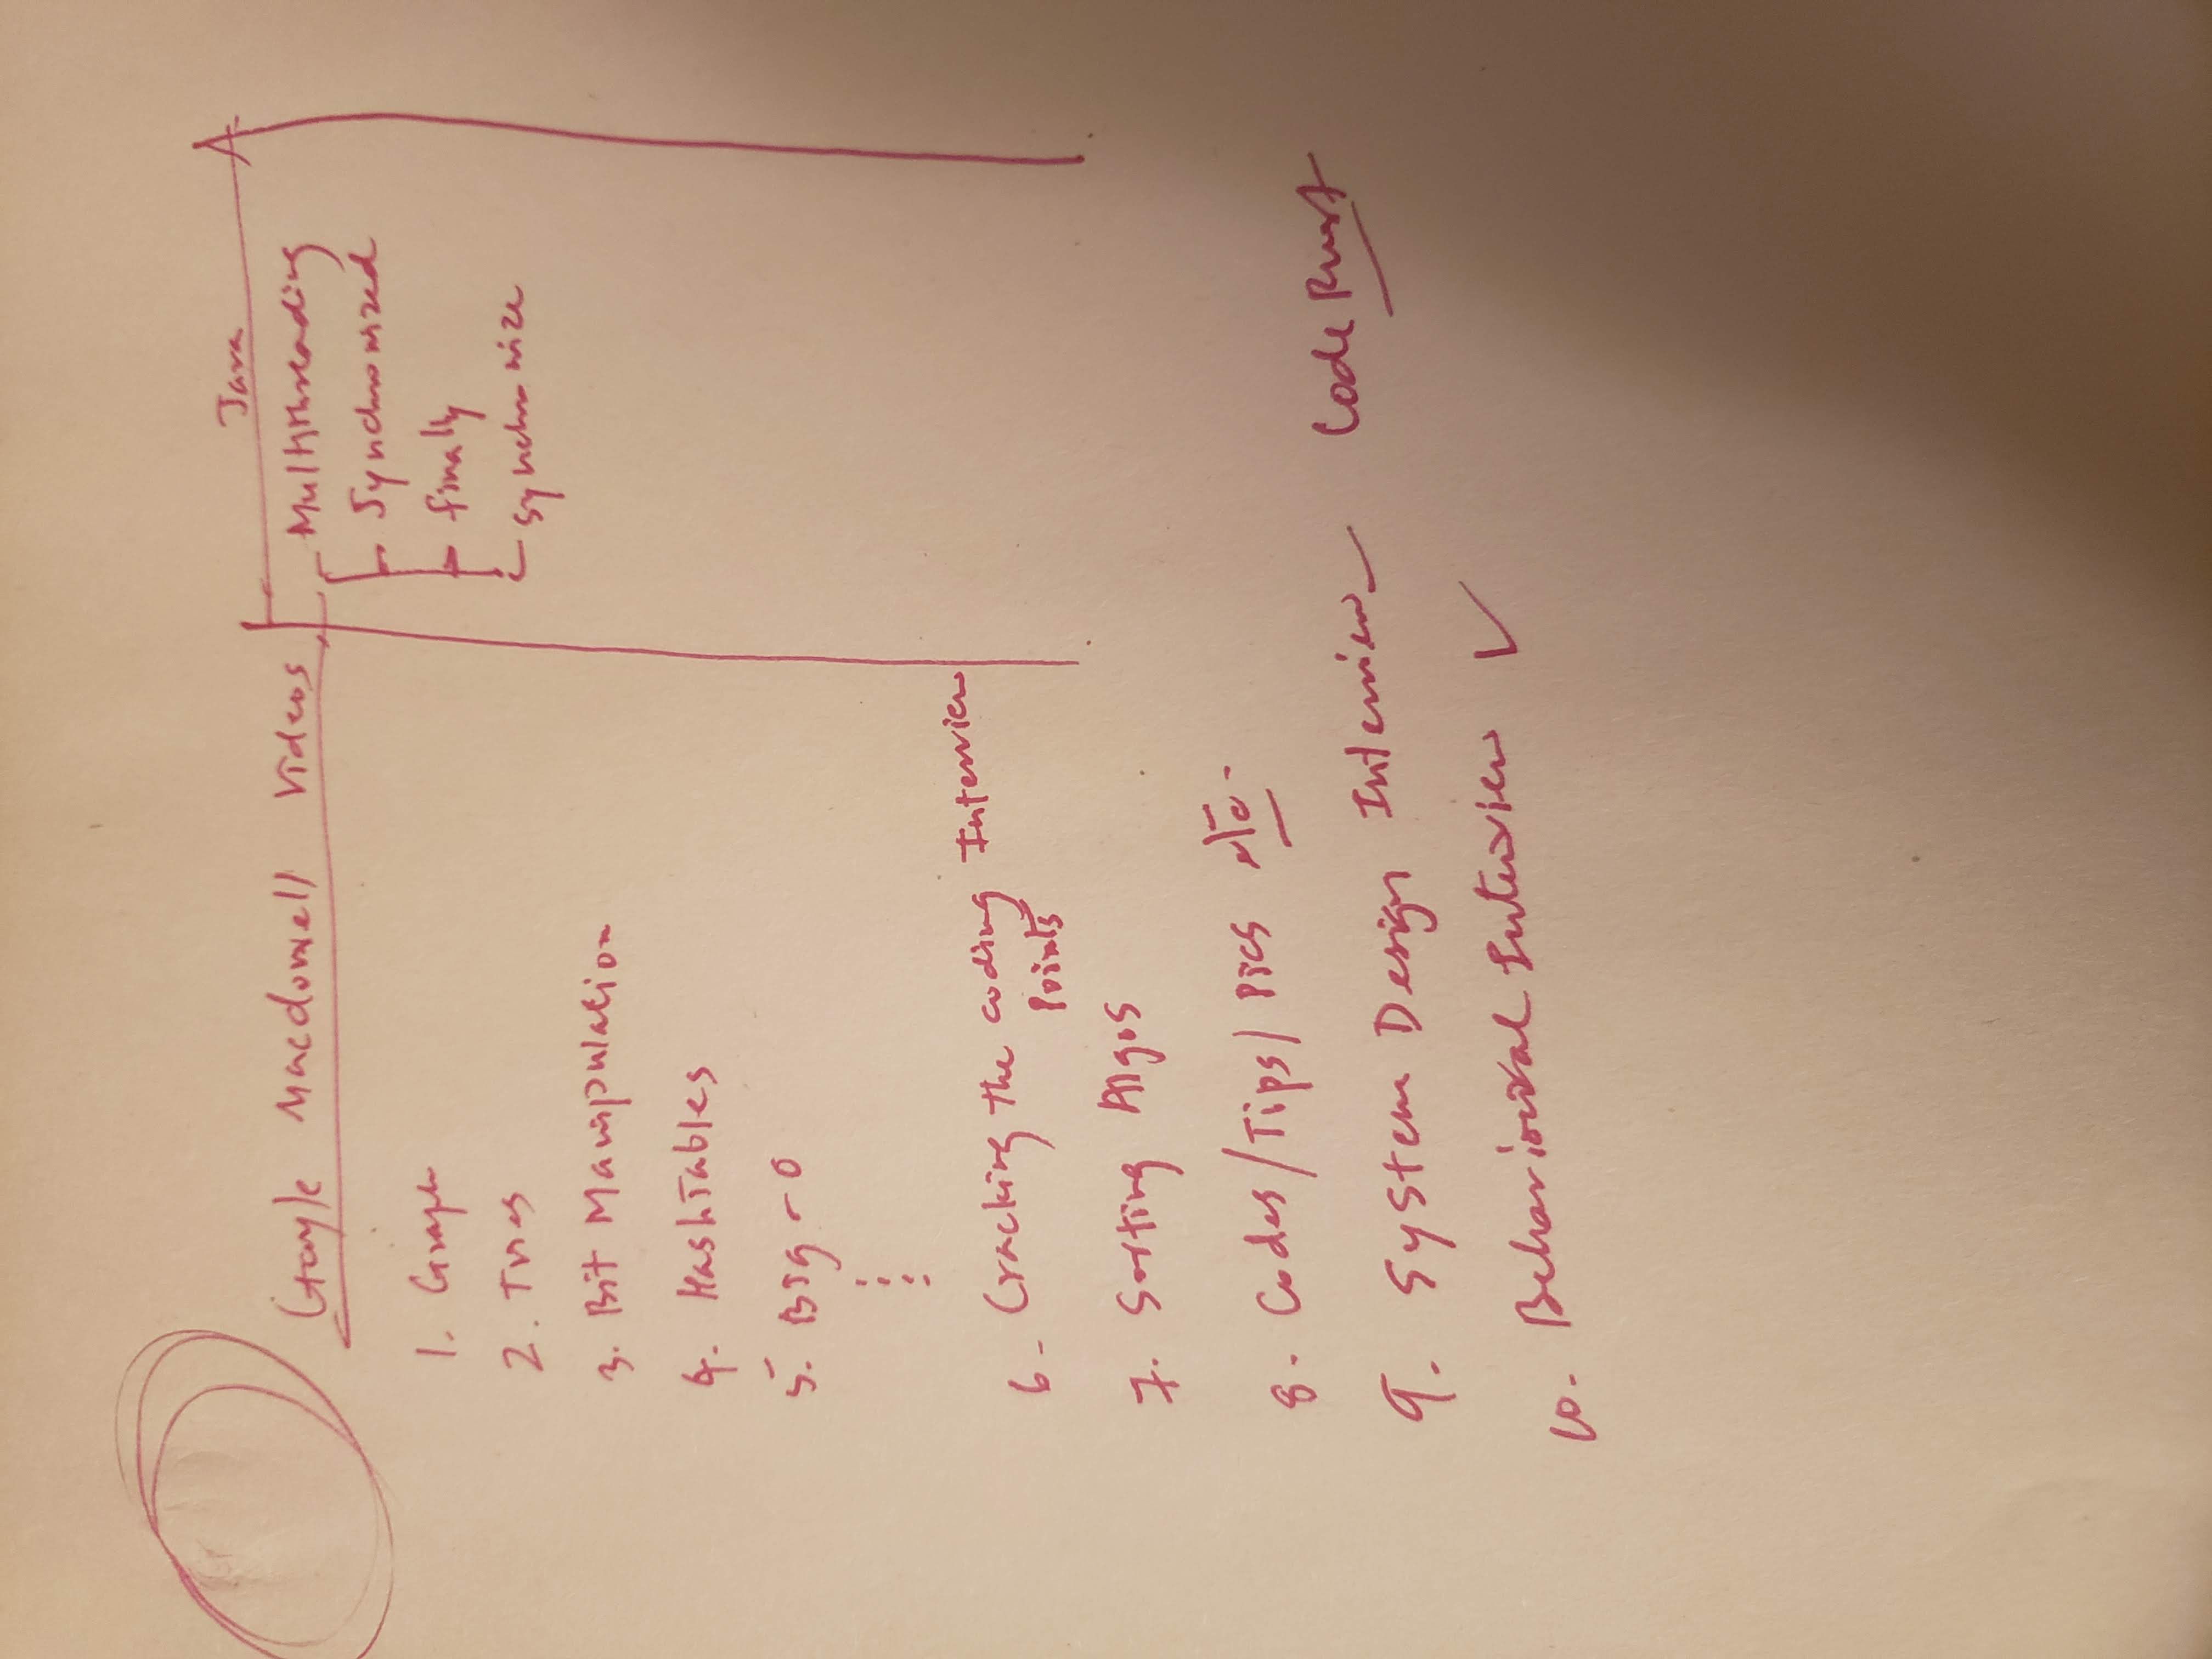 Gayle Macdowell Videos
1. Graph
2. Tries
3. Bit Manipulation
4. HashTables
5. Big-O
6- Cracking the coding Interview
Points
7. Sorting Algos
8. Codes/Tips/Pics etc.
9. System Design Interview - Code Rust
10. Behavioural Interview ✓
Java
Multithreading
Synchronized
finally
synchronize